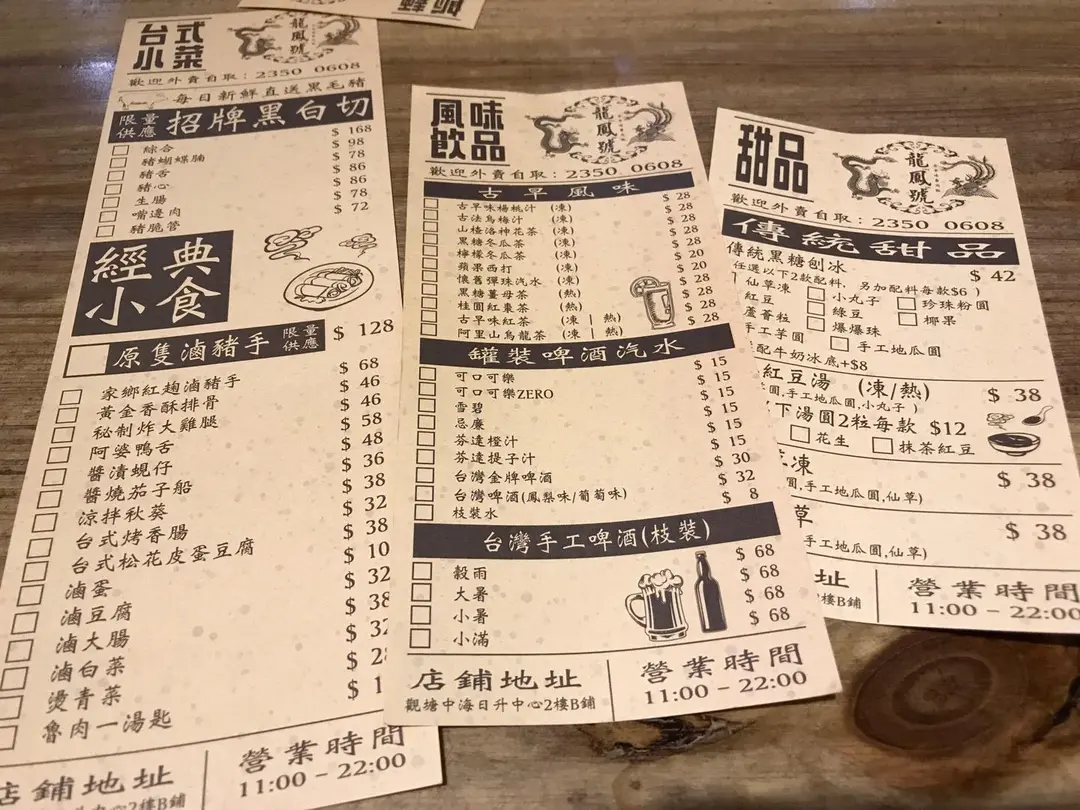 台式
小菜
龍鳳號
歡迎外賣自取：2350 0608
每日新鮮直送黑毛豬
限量
供應
招牌黑白切
綜合 $ 168
豬蝴蝶腩 $ 98
豬舌 $ 78
豬心 $ 86
生腸 $ 86
嘴邊肉 $ 78
豬脆管 $ 72
經典
小食
原隻滷豬手 限量供應 $ 128
家鄉紅麴滷豬手 $ 68
黃金香酥排骨 $ 46
秘制炸大雞腿 $ 46
阿婆鴨舌 $ 58
醬漬蜆仔 $ 48
醬燒茄子船 $ 36
涼拌秋葵 $ 38
台式烤香腸 $ 32
台式松花皮蛋豆腐 $ 38
滷蛋 $ 10
滷豆腐 $ 32
滷大腸 $ 38
滷白菜 $ 32
燙青菜 $ 28
魯肉一湯匙 $ 1
店鋪地址
中心2樓B鋪
營業時間
11:00 - 22:00
風味
飲品
龍鳳號
歡迎外賣自取：2350 0608
古早風味
古早味楊桃汁 (凍) $ 28
古法烏梅汁 (凍) $ 28
山楂洛神花茶 (凍) $ 28
黑糖冬瓜茶 (凍) $ 28
檸檬冬瓜茶 (凍) $ 28
蘋果西打 (凍) $ 20
懷舊彈珠汽水 (凍) $ 20
黑糖薑母茶 (熱) $ 28
桂圓紅棗茶 (熱) $ 28
古早味紅茶 (凍 | 熱) $ 28
阿里山烏龍茶 (凍 | 熱) $ 28
罐裝啤酒汽水
可口可樂 $ 15
可口可樂ZERO $ 15
雪碧 $ 15
忌廉 $ 15
芬達橙汁 $ 15
芬達提子汁 $ 15
台灣金牌啤酒 $ 30
台灣啤酒(鳳梨味/葡萄味) $ 32
枝裝水 $ 8
台灣手工啤酒(枝裝)
穀雨 $ 68
大暑 $ 68
小暑 $ 68
小滿 $ 68
店鋪地址
觀塘中海日升中心2樓B鋪
營業時間
11:00 - 22:00
甜品
龍鳳號
歡迎外賣自取：2350 0608
傳統甜品
傳統黑糖刨冰 $ 42
任選以下2款配料，另加配料每款$6 )
仙草凍 小丸子 珍珠粉圓
紅豆 綠豆 椰果
蘆薈粒 爆爆珠
手工芋圓 手工地瓜圓
配牛奶冰底+$8
紅豆湯 (凍/熱) $ 38
圓,手工地瓜圓,小丸子 )
下湯圓2粒每款 $12
花生 抹茶紅豆
凍 $ 38
圓,手工地瓜圓,仙草)
草 $ 38
手工地瓜圓,仙草)
址
2樓B鋪
營業時間
11:00 - 22:00